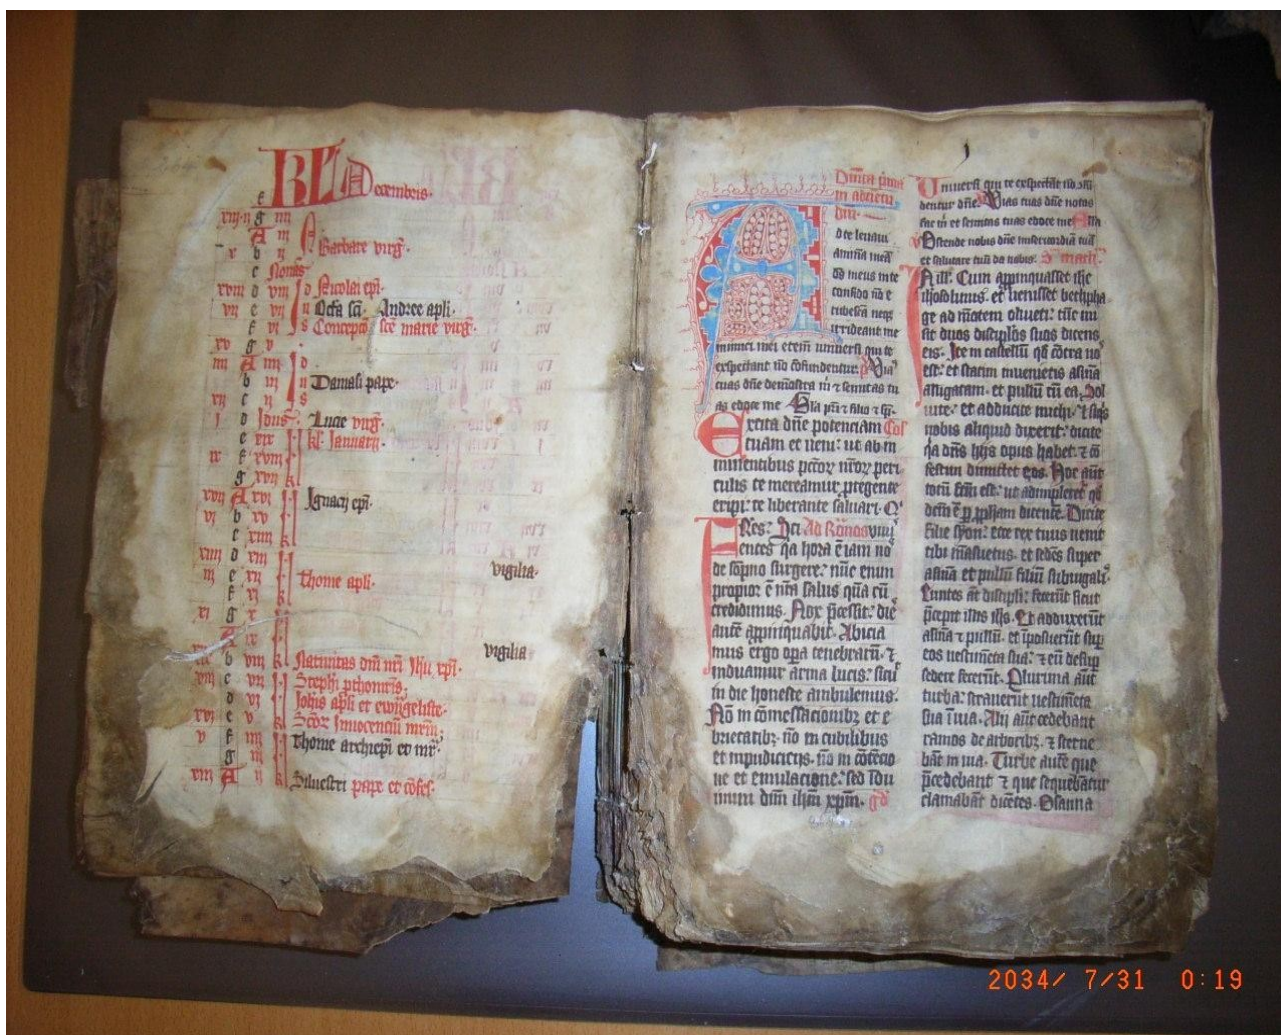 KL Decembris.
f
xiii g iiii
A iii Barbare virg.
x b ii
c Nonas
xviii d viii d Nicolai epi.
vii e vii n Octa sci Andree apli.
f vi s Concepto sce marie virg.
xv g v
iiii A iiii d
b iii n Damasi pape.
xii c ii s
i d Idus Lucie virg.
e xix kl Januarii.
ix f xviii
g xvii k
xvii A xvi Ignacii epi.
vi b xv
c xiiii k
xiiii d xiii vigilia.
iii e xii Thome apli.
f xi k
xi g x
A ix vigilia
b viii k Natiuitas dni nri Ihu xpi.
viii c vii Stephi pthomris.
d vi Johis apli et ewngeliste.
xvi e v k Scor Innocentiu mrm.
v f iiii Thome archiepi et mr.
g iii
xiii A ii k Siluestri pape et cofes.
Dnica prima
in aduetu
dni
d te leuaui
anima mea
ds meus in te
confido no e
rubesca neqz
irrideant me
inimici mei etem uniuersi qui te
expectant no cofundentur. Vias
tuas dne demostra m et semitas tu
as edoce me Gla pri et filio et sp.
Excita dne potenciam Col
tuam et veni: ut ab in
minentibus pctor nror peri
culis te mereamur protegente
eripi: te liberante saluari. Q
Fres: Sci Ad Romos
entes qa hora e iam no
de sopno surgere: nuc enim
propior e nra salus qua cu
credidimus. Nox pcessit: die
aute appinquabit. Abicia
mus ergo opa tenebraru: et
induamur arma lucis: sicut
in die honeste ambulemus.
No in comessacionibz et e
brietatibz: no in cubilibus
et inpudiciciis: no in cotecio
ne et emulacione: sed Indu
imini dnm ihm xpm. gd
Uniuersi qui te expectat no con
dentur dne. Vias tuas dne notas
fac m et semitas tuas edoce me Alla
Ostende nobis dne misericordia tua
et salutare tuu da nobis. S math
In ill. Cum appinquasset ihs
iherosolimis. et uenisset bethpha
ge ad motem oliueti: tuc mi
sit duos discipulos suos dicens
eis. Ite in castellu qd cotra uos
est: et statim inuenietis asina
alligatam. et pullu cu ea. Sol
uite. et adducite michi. et siqs
nobis aliquid dixerit: dicite
qa dns hiis opus habet. et co
festim dimittet eos. Hoc aut
totu fcm est: ut adimpleret qd
dcm e p ppham dicente. Dicite
filie syon: ecce rex tuus uenit
tibi masuetus. et sedes super
asina et pullu filiu subiugal.
Euntes at discipli: fecerut sicut
pcepit illis ihs. Et adduxerut
asina et pullu. et iposuerut sup
eos uestimeta sua: et eu desup
sedere fecerut. Plurima aut
turba: strauerut uestimeta
sua i uia. Alii aut cedebant
ramos de arboribz. et sterne
bat in uia. Turbe aute que
pcedebant et que sequebatur
clamabat dicetes. Osanna
2034/ 7/31 0:19